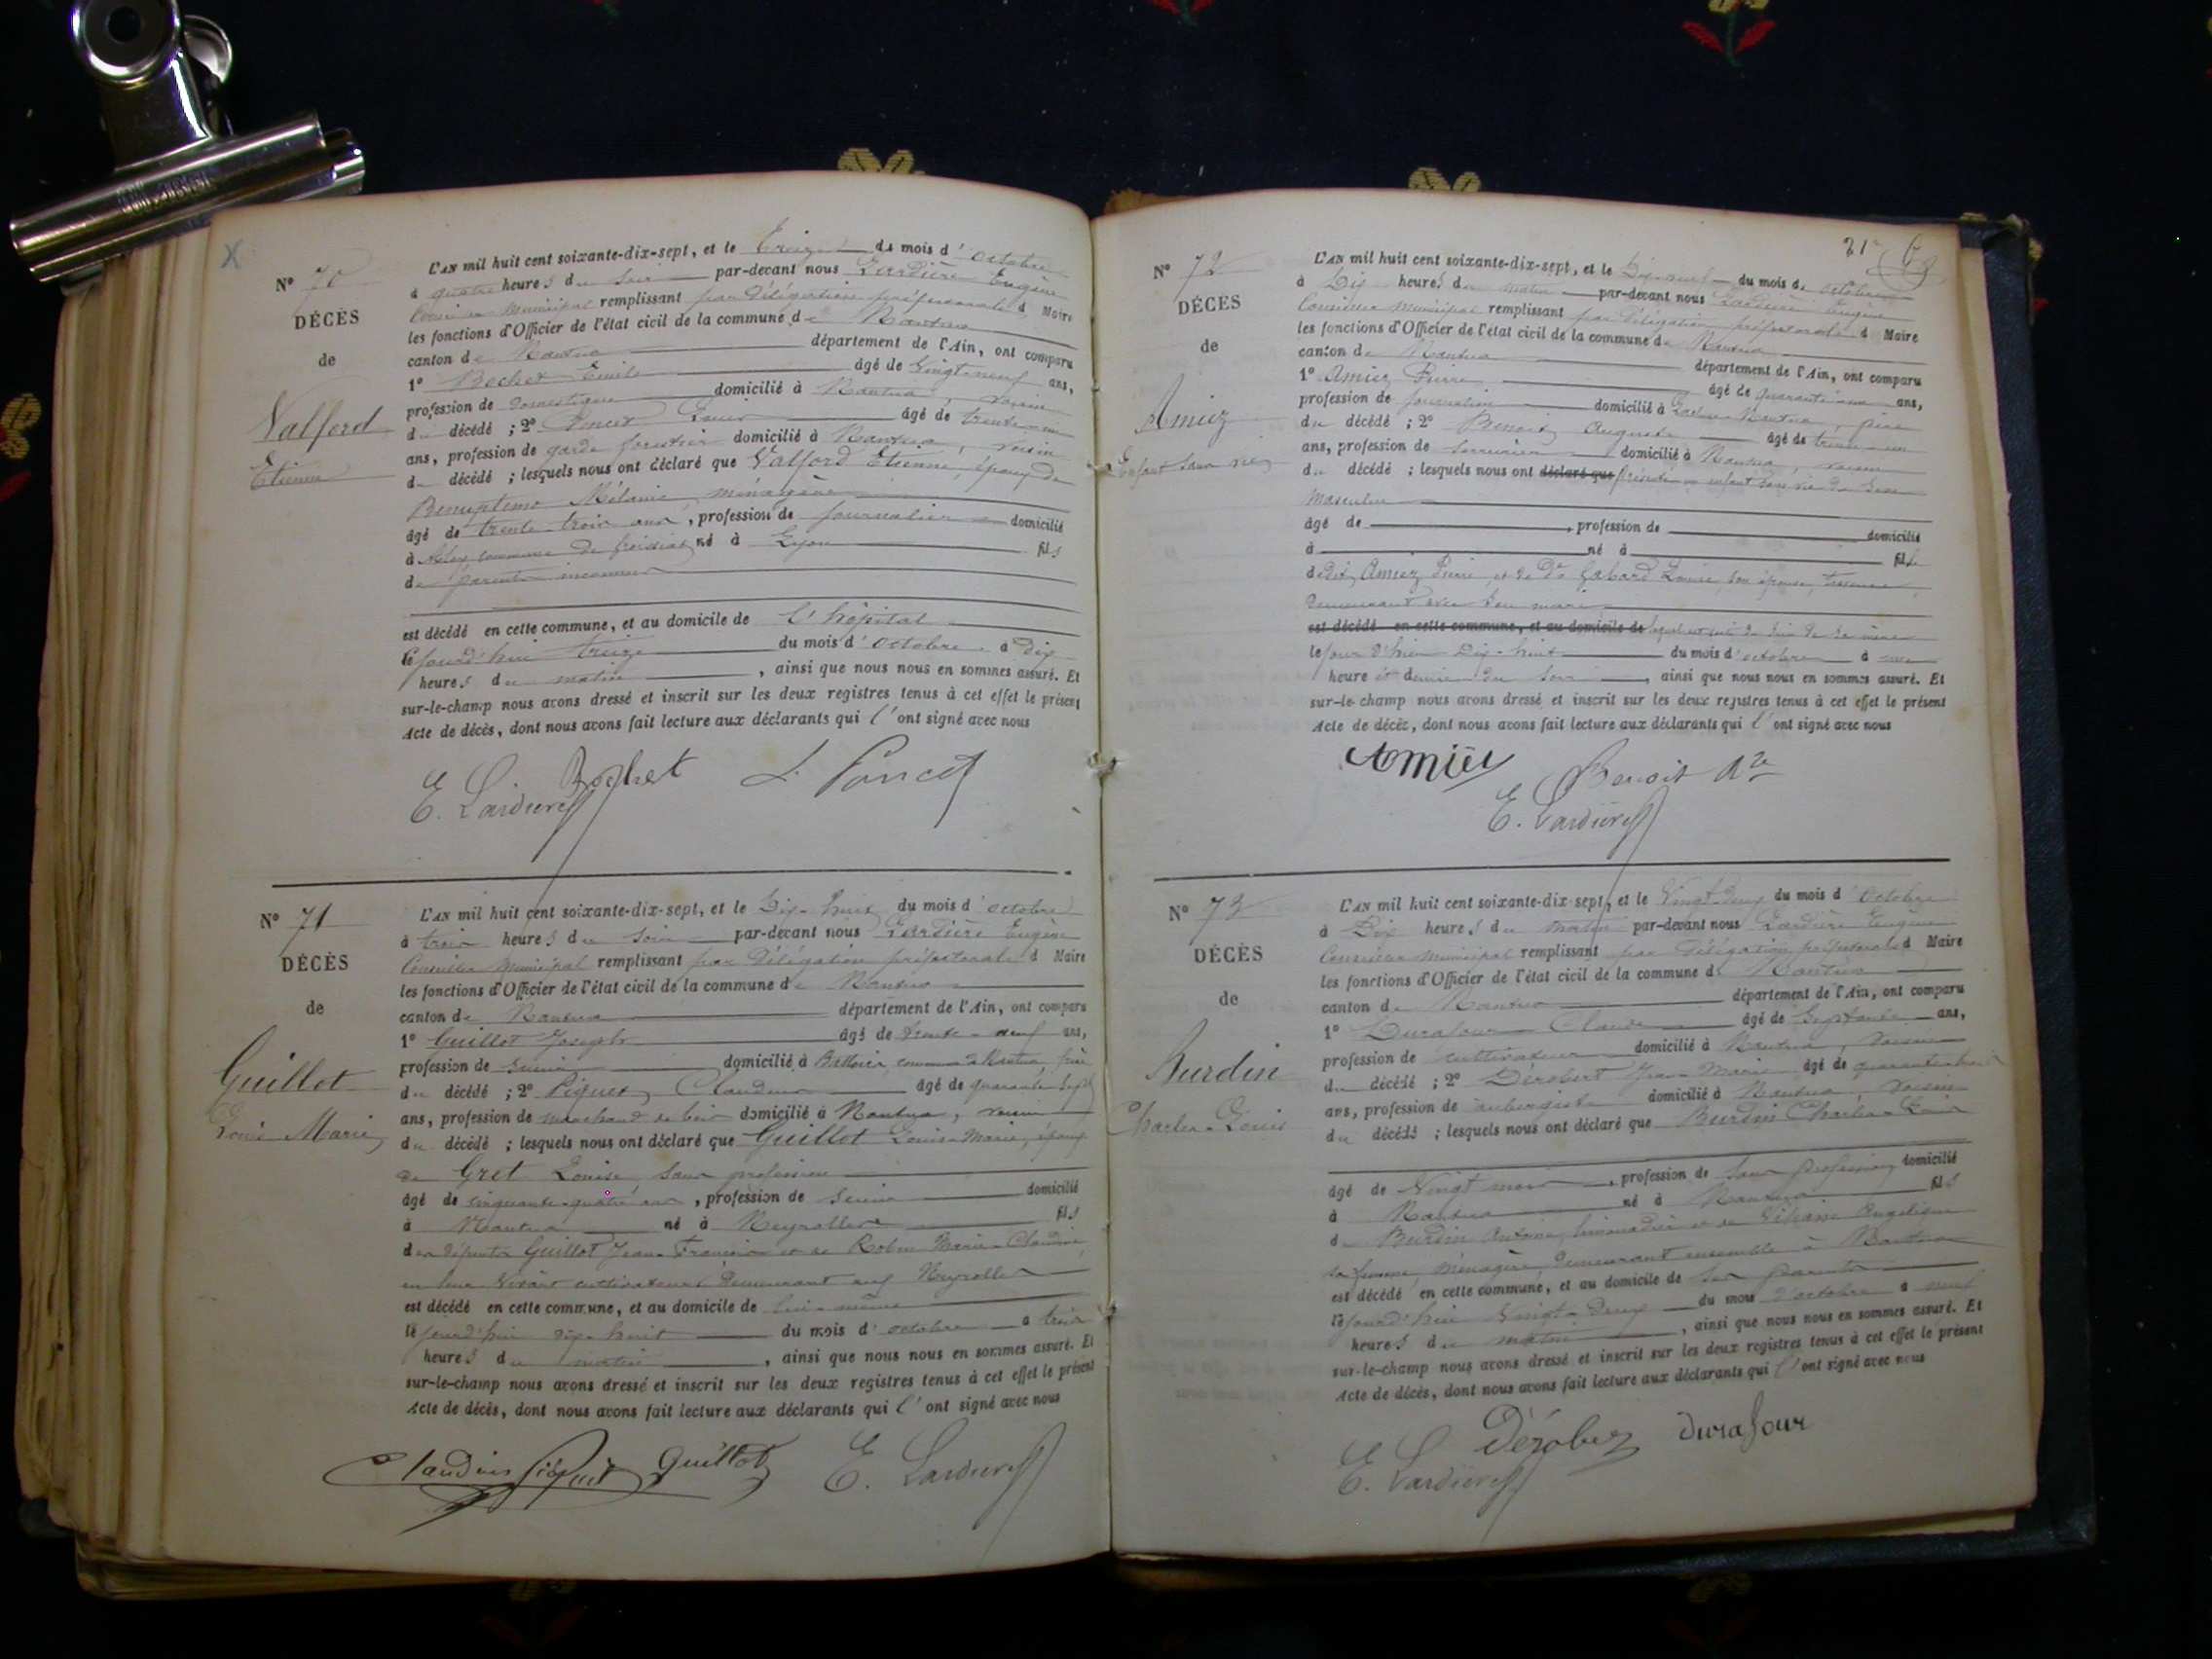 Nº 70
DÉCÈS
de
Valford
Etienne
L'AN mil huit cent soixante-dix-sept, et le Treize du mois d'octobre
à quatre heures du soir par-devant nous Lardière Eugène
Conseiller Municipal remplissant par Délégation préfectorale d Maire
les fonctions d'Officier de l'état civil de la commune de Nantua
canton de Nantua département de l'Ain, ont comparu
1º Bochet Emile âgé de Vingt-neuf ans,
profession de domestique domicilié à Nantua, voisin
du décédé ; 2º Poncet Louis âgé de trente-un
ans, profession de garde forestier domicilié à Nantua, voisin
du décédé ; lesquels nous ont déclaré que Valford Etienne, époux de
Mélanie, ménagère
âgé de trente-trois ans, profession de journalier domicilié
à commune de né à Lyon fils
de parents inconnus
est décédé en cette commune, et au domicile de l'hôpital
le jourd'hui treize du mois d'octobre à dix
heures du matin, ainsi que nous nous en sommes assuré. Et
sur-le-champ nous avons dressé et inscrit sur les deux registres tenus à cet effet le présent
Acte de décès, dont nous avons fait lecture aux déclarants qui l'ont signé avec nous
Bochet L. Poncet
E. Lardière
Nº 71
DÉCÈS
de
Guillot
Louis Marie
L'AN mil huit cent soixante-dix-sept, et le Dix-huit du mois d'octobre
à trois heures du soir par-devant nous Lardière Eugène
Conseiller Municipal remplissant par Délégation préfectorale d Maire
les fonctions d'Officier de l'état civil de la commune de Nantua
canton de Nantua département de l'Ain, ont comparu
1º Guillot Joseph âgé de trente-neuf ans,
profession de scieur domicilié à commune de Nantua, frère
du décédé ; 2º Piquet Claudius âgé de quarante-sept
ans, profession de marchand de bois domicilié à Nantua, voisin
du décédé ; lesquels nous ont déclaré que Guillot Louis-Marie, époux
de Gret Louise, sans profession
âgé de cinquante-quatre ans, profession de scieur domicilié
à Nantua né à Neyrolles fils
des défunts Guillot Jean-François et de Robin Marie-Claudine,
en leur vivant cultivateurs demeurant aux Neyrolles
est décédé en cette commune, et au domicile de lui-même
le jourd'hui dix-huit du mois d'octobre à trois
heures du matin, ainsi que nous nous en sommes assuré. Et
sur-le-champ nous avons dressé et inscrit sur les deux registres tenus à cet effet le présent
Acte de décès, dont nous avons fait lecture aux déclarants qui l'ont signé avec nous
Claudius Piquet Guillot E. Lardière
21
Nº 72
DÉCÈS
de
Amiez
Enfant sans vie
L'AN mil huit cent soixante-dix-sept, et le Dix-neuf du mois d'octobre
à Dix heures du matin par-devant nous Lardière Eugène
Conseiller Municipal remplissant par Délégation préfectorale d Maire
les fonctions d'Officier de l'état civil de la commune de Nantua
canton de Nantua département de l'Ain, ont comparu
1º Amiez Pierre âgé de quarante ans,
profession de journalier domicilié à Nantua, père
du décédé ; 2º Benoit Auguste âgé de trente-un
ans, profession de serrurier domicilié à Nantua, voisin
du décédé ; lesquels nous ont déclaré que présenté un enfant sans vie du Sexe
Masculin
âgé de , profession de domicilié
à né à fils
dudit Amiez Pierre, et de De Gabard Louise, son épouse,
demeurant avec son mari
est décédé en cette commune, et au domicile de lequel est sorti du sein de sa mère
le jour d'hier Dix-huit du mois d'octobre à une
heure et demie du soir, ainsi que nous nous en sommes assuré. Et
sur-le-champ nous avons dressé et inscrit sur les deux registres tenus à cet effet le présent
Acte de décès, dont nous avons fait lecture aux déclarants qui l'ont signé avec nous
Amiez Benoit Ate
E. Lardière
Nº 73
DÉCÈS
de
Burdin
Charles-Louis
L'AN mil huit cent soixante-dix-sept, et le Vingt-deux du mois d'octobre
à Dix heures du matin par-devant nous Lardière Eugène
Conseiller Municipal remplissant par Délégation préfectorale d Maire
les fonctions d'Officier de l'état civil de la commune de Nantua
canton de Nantua département de l'Ain, ont comparu
1º Durafour Claude âgé de Septante ans,
profession de cultivateur domicilié à Nantua, voisin
du décédé ; 2º Dérobert Jean-Marie âgé de
ans, profession de aubergiste domicilié à Nantua, voisin
du décédé ; lesquels nous ont déclaré que Burdin Charles-Louis
âgé de Vingt mois, profession de sans profession domicilié
à Nantua né à Nantua fils
de Burdin Antoine, limonadier et de Angélique
sa femme, ménagère, demeurant ensemble à Nantua
est décédé en cette commune, et au domicile de ses parents
le jourd'hui Vingt-deux du mois d'octobre à neuf
heures du matin, ainsi que nous nous en sommes assuré. Et
sur-le-champ nous avons dressé et inscrit sur les deux registres tenus à cet effet le présent
Acte de décès, dont nous avons fait lecture aux déclarants qui l'ont signé avec nous
Dérobert durafour
E. Lardière